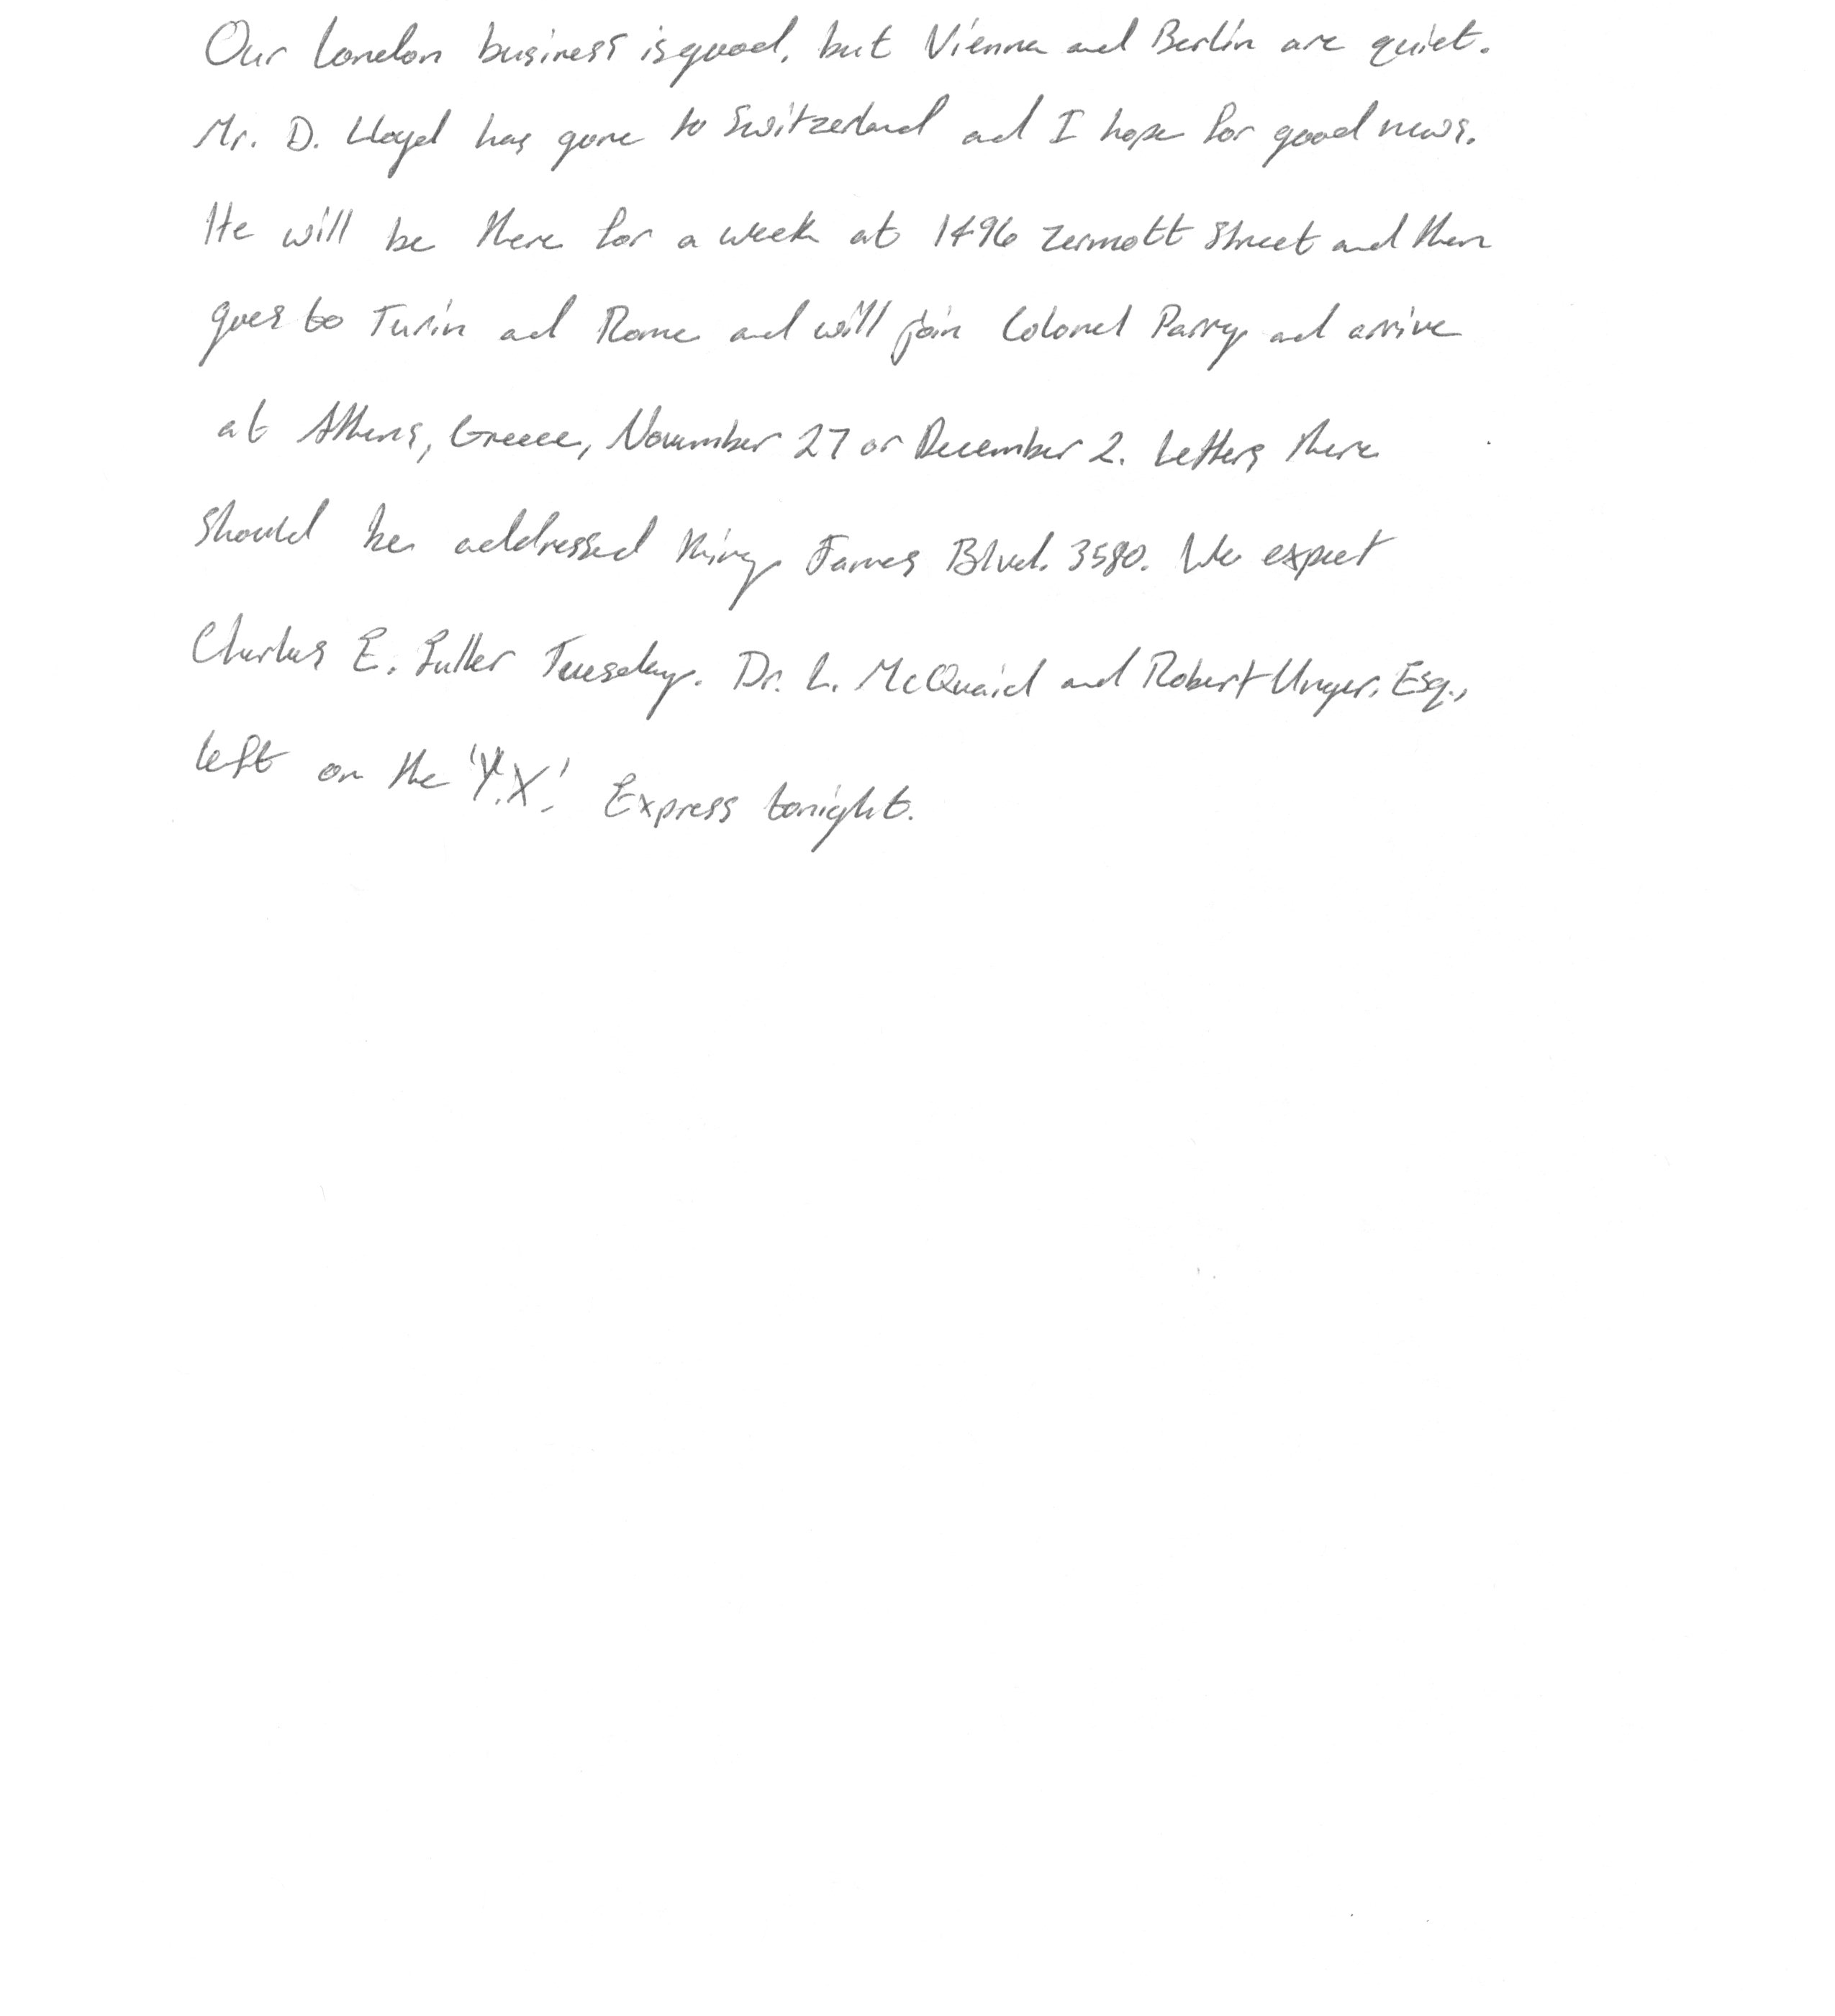 Our London business is good, but Vienna and Berlin are quiet.
Mr. D. Lloyd has gone to Switzerland and I hope for good news.
He will be there for a week at 1496 Zermott Street and then
goes to Turin and Rome and will join Colonel Parry and arrive
at Athens, Greece, November 27 or December 2. Letters there
should be addressed King James Blvd. 3580. We expect
Charles E. Fuller Tuesday. Dr. L. McQuaid and Robert Unger, Esq.,
left on the 'Y.X.' Express tonight.